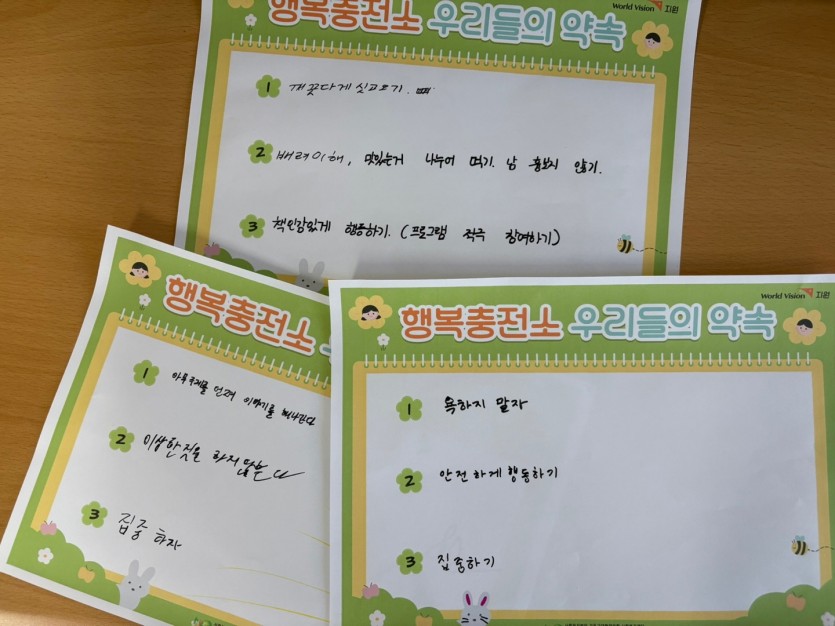 World Vision 지원
행복충전소 우리들의 약속
1 깨끗하게 씻고오기.
2 배려 이해, 맛있는거 나누어 먹기. 남 흉보지 않기.
3 책임감있게 행동하기. (프로그램 적극 참여하기)
행복충전소
1 이야기를
2 이상한짓을 하지 않는다
3 집중 하자
World Vision 지원
행복충전소 우리들의 약속
1 욕하지 말자
2 안전하게 행동하기
3 집중하기